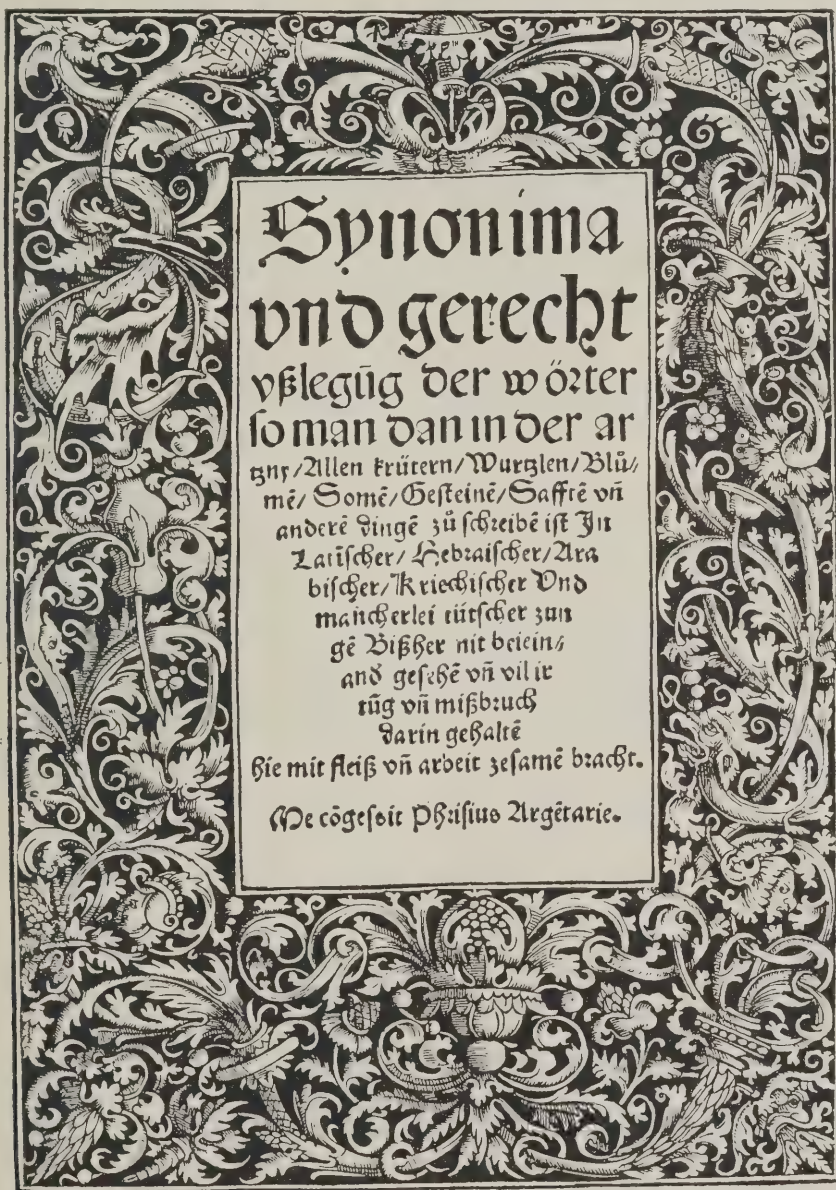 Synonima
vnd gerecht
vßlegūg der wörter
so man dan in der ar
tzny/Allen krütern/Wurtzlen/Blů/
mē/Somē/Gesteinē/Safftē vñ
anderē dingē zů schreibē ist In
Latīscher/Hebraischer/Ara
bischer/Kriechischer Vnd
mancherlei tütscher zun
gē Bißher nit beiein/
and gesehē vñ vil ir
tūg vñ mißbruch
darin gehaltē
hie mit fleiß vñ arbeit zesamē bracht.
Me cōgessit Phrisius Argētarie.